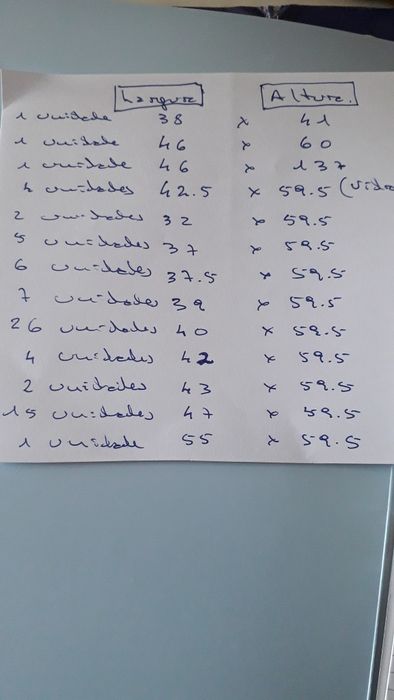 Largura Altura.
1 unidade 38 x 41
1 unidade 46 x 60
1 unidade 46 x 137
4 unidades 42.5 x 59.5
2 unidades 32 x 59.5
5 unidades 37 x 59.5
6 unidades 37.5 x 59.5
7 unidades 39 x 59.5
26 unidades 40 x 59.5
4 unidades 42 x 59.5
2 unidades 43 x 59.5
15 unidades 47 x 59.5
1 unidade 55 x 59.5